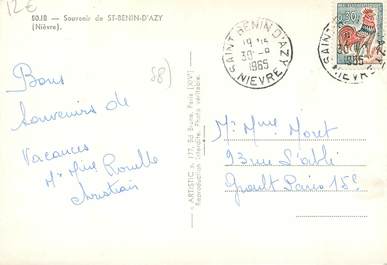 12€
50.18 — Souvenir de ST-BENIN-D'AZY
(Nièvre).
58)
Bons
Souvenirs de
Vacances
Mr Mme
Christian
« ARTISTIC » 177, Bd Brune, Paris (XIV)
Reproduction interdite. Photo véritable.
SAINT BENIN D'AZY
30-8
1965
NIEVRE
30F
SAINT
AZY
1965
NIEVRE
Mr Mme Moret
93 rue
Paris 15e